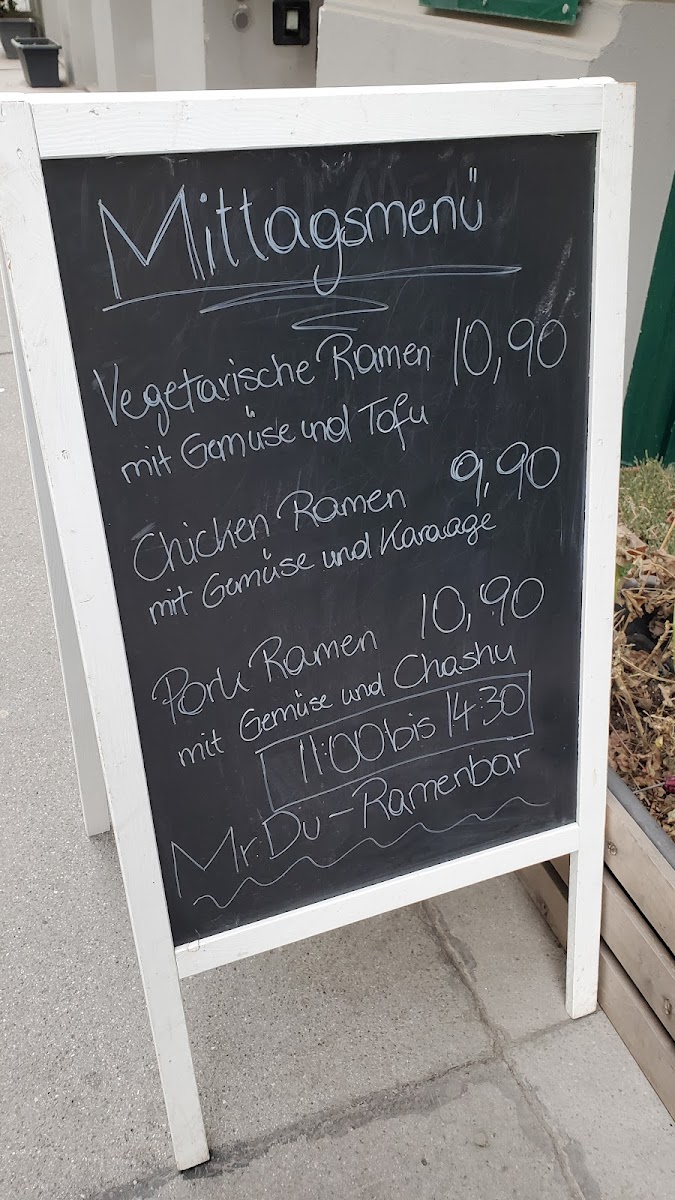 Mittagsmenü
Vegetarische Ramen 10,90
mit Gemüse und Tofu
Chicken Ramen 9,90
mit Gemüse und Karaage
Pork Ramen 10,90
mit Gemüse und Chashu
11:00 bis 14:30
Mr. Du - Ramenbar